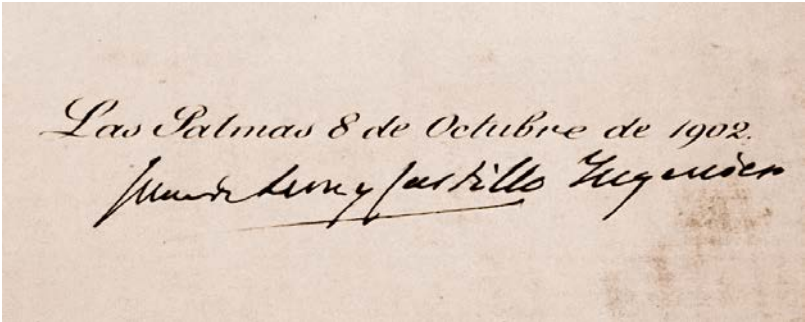 Las Palmas 8 de Octubre de 1902.
Juan de Leon y Castillo Ingeniero